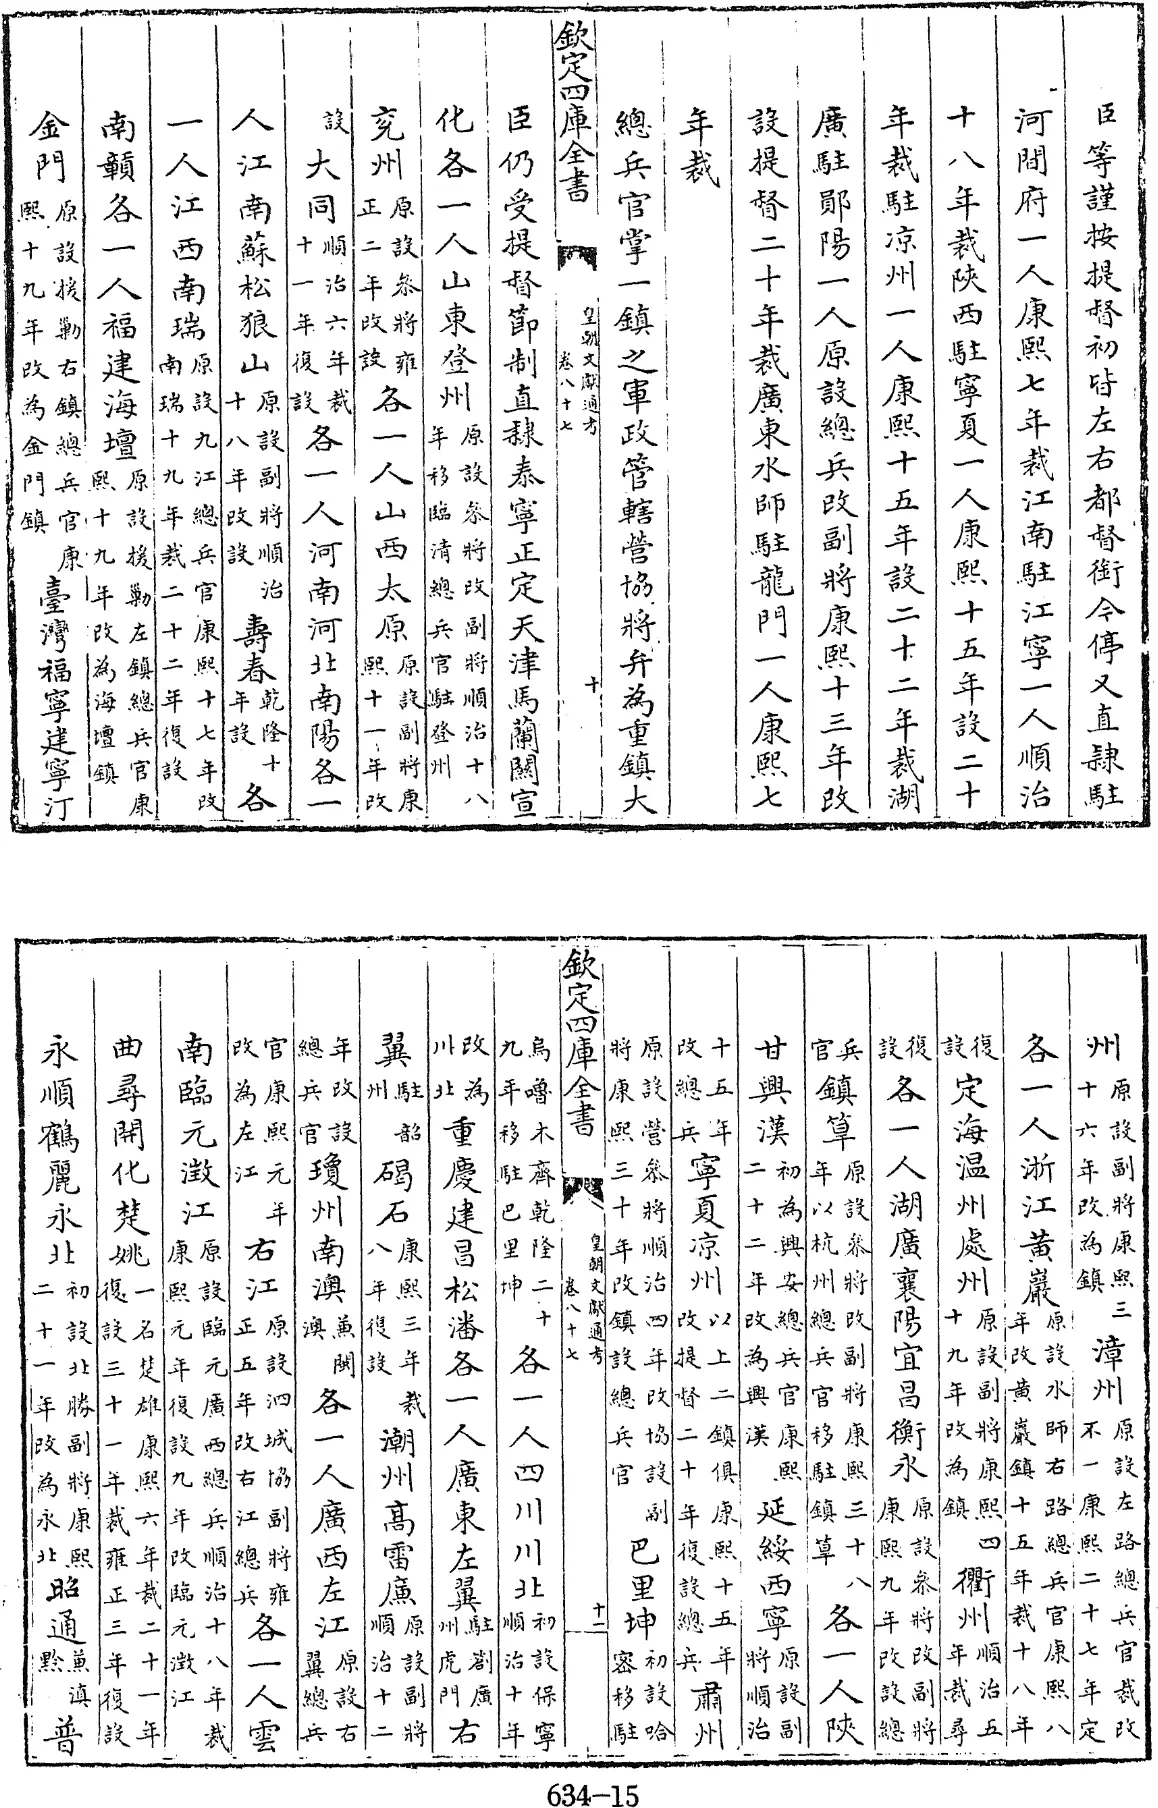 臣等謹按提督初皆左右都督銜今停又直隸駐
河間府一人康熙七年裁江南駐江寧一人順治
十八年裁陝西駐寧夏一人康熙十五年設二十
年裁駐凉州一人康熙十五年設二十二年裁湖
廣駐鄖陽一人原設總兵改副將康熙十三年改
設提督二十年裁廣東水師駐龍門一人康熙七
年裁
總兵官掌一鎮之軍政管轄營協將弁為重鎮大
欽定四庫全書 皇朝文獻通考 卷八十七 十
臣仍受提督節制直隸泰寧正定天津馬蘭關宣
化各一人山東登州原設叅將改副將順治十八年移臨清總兵官駐登州
兗州原設叅將雍正二年改設各一人山西太原原設副將康熙十一年改
設大同順治六年裁十一年復設各一人河南河北南陽各一
人江南蘇松狼山原設副將順治十八年改設壽春乾隆十年設各
一人江西南瑞原設九江總兵官康熙十七年改南瑞十九年裁二十二年復設
南贛各一人福建海壇原設援勦左鎮總兵官康熙十九年改為海壇鎮
金門原設援勦右鎮總兵官康熙十九年改為金門鎮臺灣福寧建寧汀
州原設副將康熙三十六年改為鎮漳州原設左路總兵官裁改不一康熙二十七年定
各一人浙江黃巖原設水師右路總兵官康熙八年改黃巖鎮十五年裁十八年
復設定海温州處州原設副將康熙四十九年改為鎮衢州順治五年裁尋
復設各一人湖廣襄陽宜昌衡永原設叅將改副將康熙九年改設總
兵官鎮筸原設叅將改副將康熙三十八年以杭州總兵官移駐鎮筸各一人陝
甘興漢初為興安總兵官康熙二十二年改為興漢延綏西寧原設副將順治
十五年改總兵寧夏凉州以上二鎮俱康熙十五年改提督二十年復設總兵肅州
原設營叅將順治四年改協設副將康熙三十年改鎮設總兵官巴里坤初設哈密移駐
欽定四庫全書 皇朝文獻通考 卷八十七 十一
烏嚕木齊乾隆二十九年移駐巴里坤各一人四川川北初設保寧順治十年
改為川北重慶建昌松潘各一人廣東左翼駐劄廣州虎門右
翼駐韶州碣石康熙三年裁八年復設潮州高雷廉原設副將順治十二
年改設總兵官瓊州南澳兼閩澳各一人廣西左江原設右翼總兵
官康熙元年改為左江右江原設泗城協副將雍正五年改右江總兵各一人雲
南臨元澂江原設臨元廣西總兵順治十八年裁康熙元年復設九年改臨元澂江
曲尋開化楚姚一名楚雄康熙六年裁二十一年復設三十一年裁雍正三年復設
永順鶴麗永北初設北勝副將康熙二十一年改為永北昭通兼滇黔普
634-15